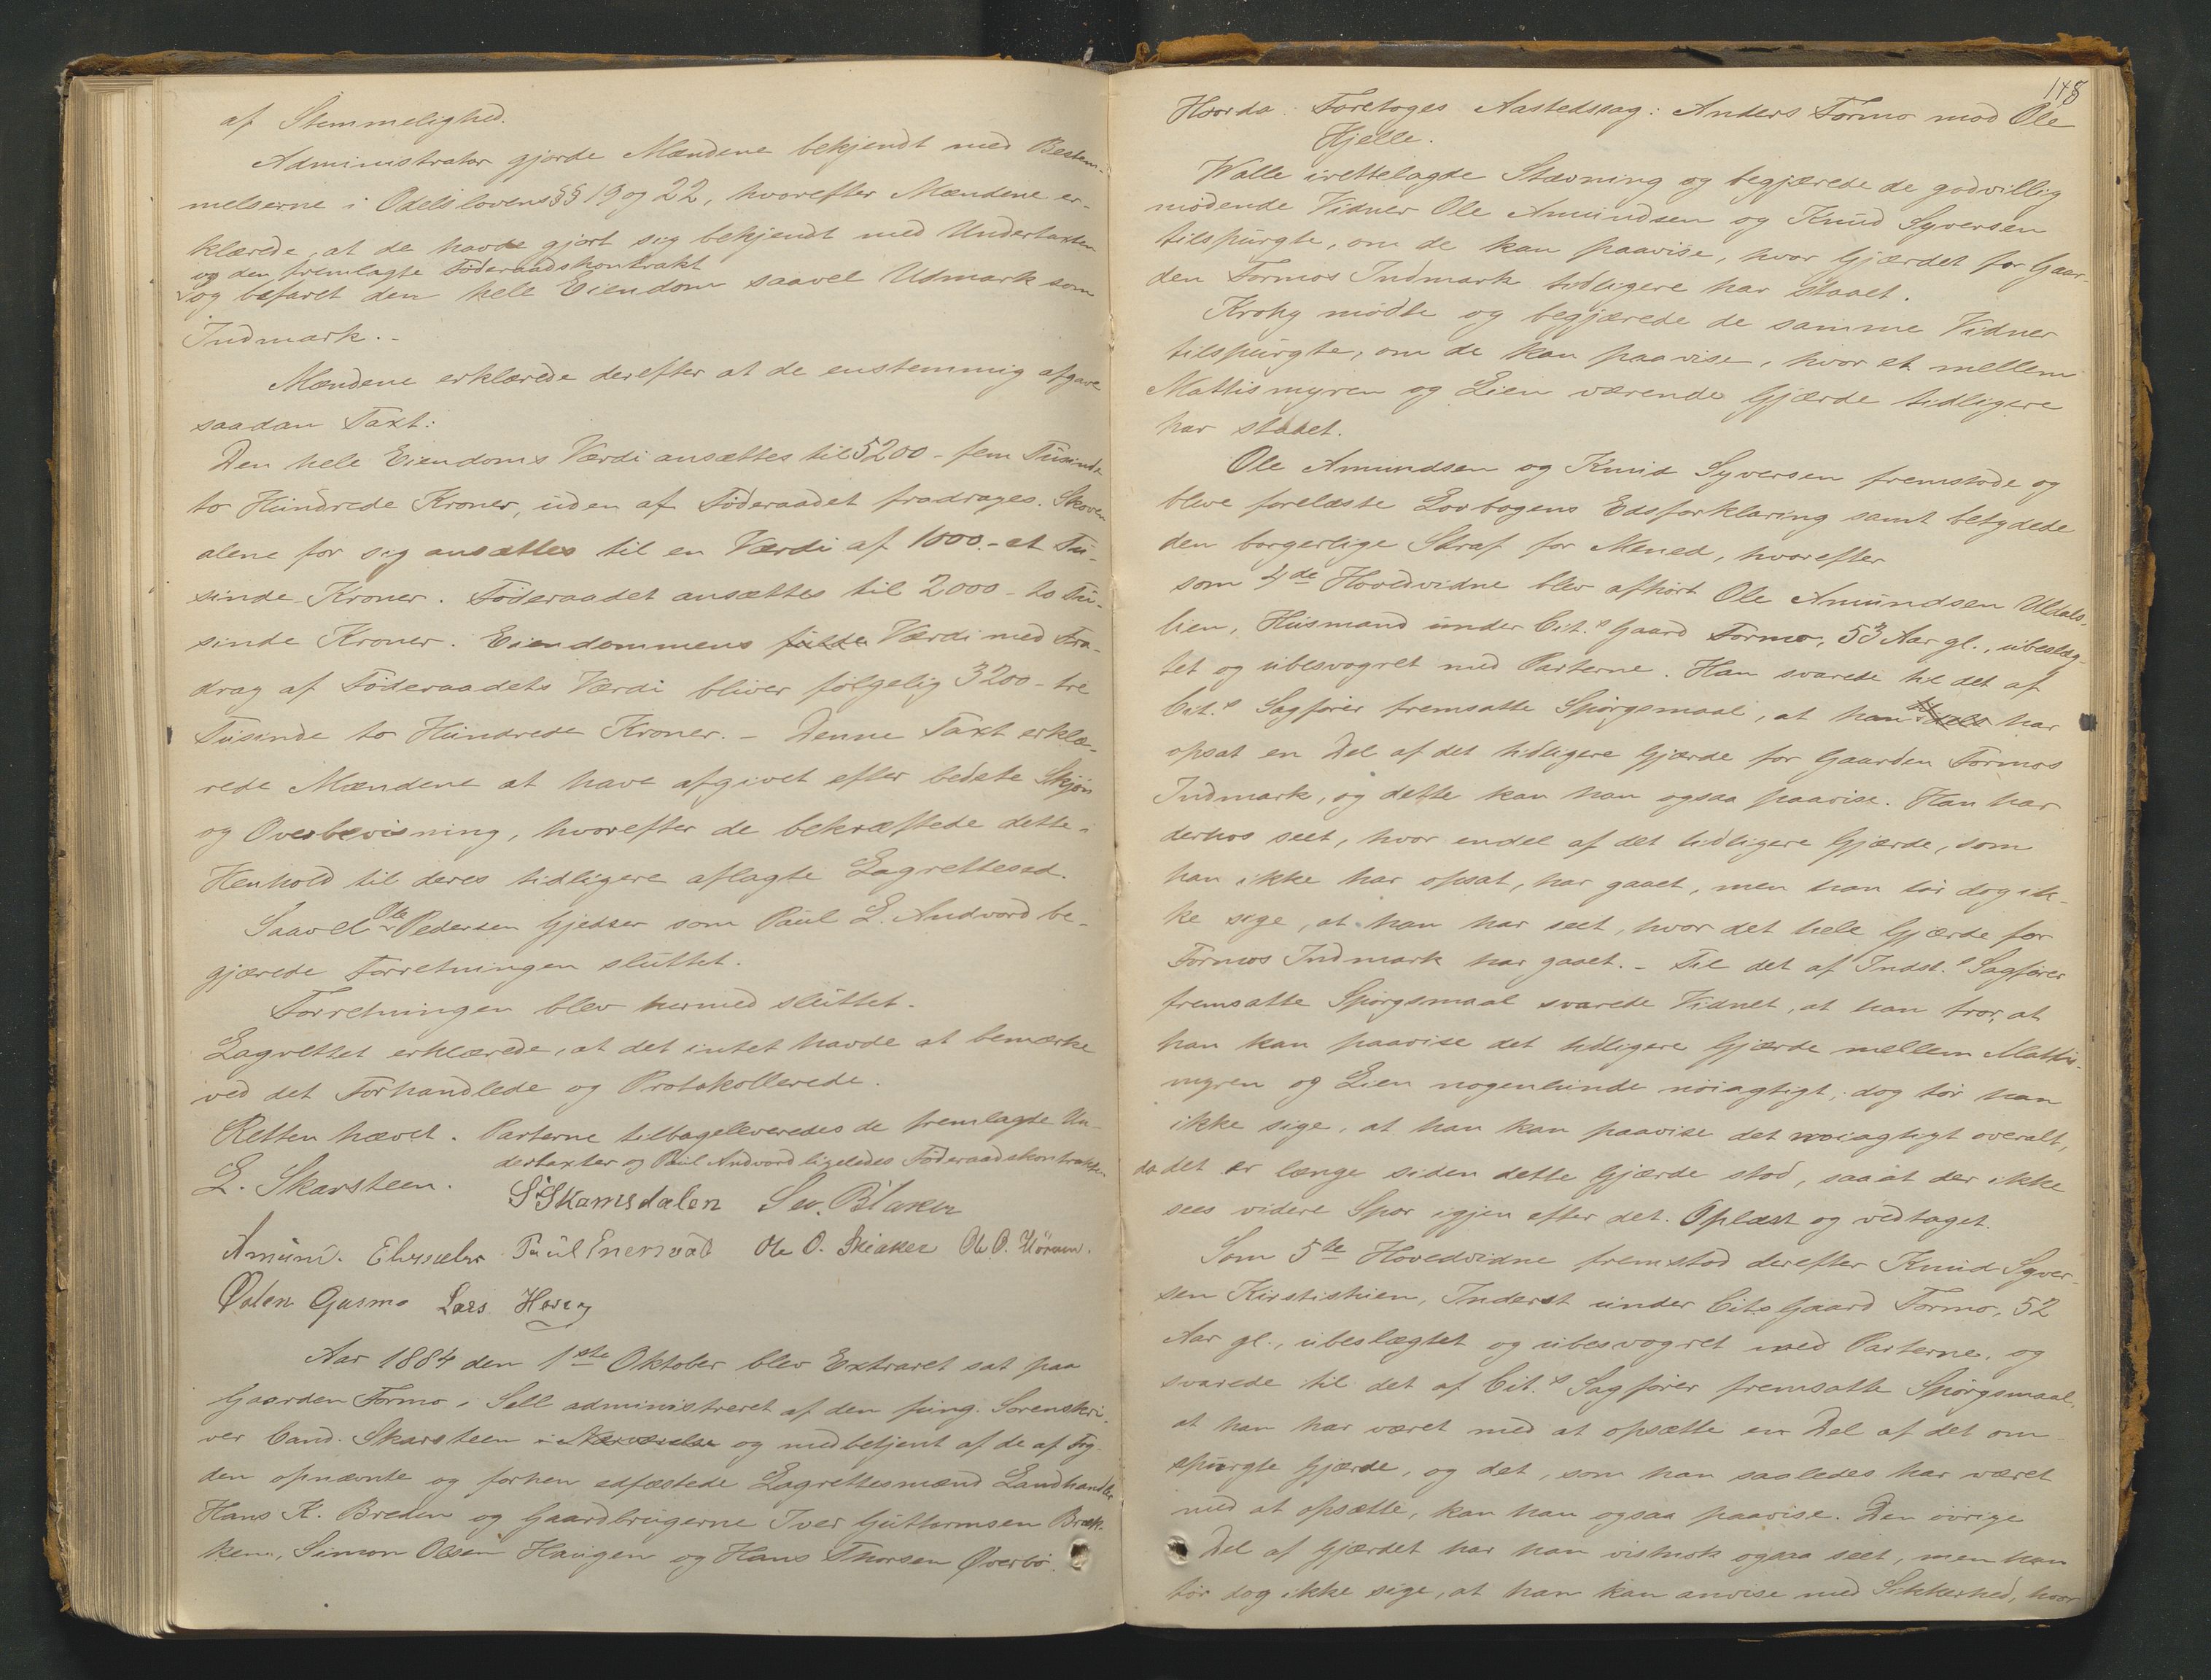 af Stemmelighed.
Administrator gjorde Mændene bekjendt med Bestem-
melserne i Odelslovens §§ 19 og 22, hvorefter Mændene er-
klærede, at de havde gjort sig bekjendt med Undertaxten
og den fremlagte Föderaadskontrakt
og befaret den hele Eiendom saavel Udmark som
Indmark.-
Mændene erklærede derefter at de enstemmig afgave
saadan Taxt:
Den hele Eiendoms Værdi ansættes til 5200 - fem Tusinde
to Hundrede Kroner, uden af Föderaadet fradrages. Skoven
alene for sig ansættes til en Værdi af 1000.- et Tu-
sinde Kroner. Föderaadet ansættes til 2000 - to Tu-
sinde Kroner. Eiendommens fulde Værdi med Fra-
drag af Föderaadets Værdi bliver fölgelig 3200 - tre
Tusinde to Hundrede Kroner. - Denne Taxt erklæ-
rede Mændene at have afgivet efter bedste Skjön
og Overbevisning, hvorefter de bekræftede dette i
Henhold til deres tidligere aflagte Lagrettesed.
Saavel Ole Pedersen Gjedser som Paul E. Andvord be-
gjærede Forretningen sluttet.
Forretningen blev hermed sluttet.
Lagrettet erklærede, at det intet havde at bemærke
ved det Forhandlede og Protokollerede.
Retten hævet. Parterne tilbageleveredes de fremlagte Un-
dertaxter og Paul Andvord ligeledes Föderaadskontrakten
E. Skarsteen. S. Skamsdalen Sev. Blaker
Amund. Paul Enersvod Ole O. Skiaker Ole O.
Gusmo Lars
Aar 1884 den 1ste Oktober blev Extraret sat paa
Gaarden Formo i Sell administreret af den fung. Sorenskri-
ver Cand. Skarsteen i Nærværelse og medbetjent af de af Fog-
den opnævnte og forhen edfæstede Lagrettesmænd Landhandler
Hans K. Breden og Gaardbrugerne Iver Guttormsen Bræk-
ken, Simon Olsen Haugen og Hans Thorsen Överbö.
148
Hvorda: Foretoges Aastedssag: Anders Formo mod Ole
Hjelle.
Walle irettelagde Stævning og begjærede de godvillig
mödende Vidner Ole Amundsen og Knud Syversen
tilspurgte, om de kan paavise, hvor Gjærdet for Gaar-
den Formos Indmark tidligere har staaet.
Krohg mödte og begjærede de samme Vidner
tilspurgte, om de kan paavise, hvor et mellem
Mattismyren og Lien værende Gjærde tidligere
har staaet.
Ole Amundsen og Knud Syversen fremstode og
bleve forelæste Lovbogens Edsforklaring samt betydede
den borgerlige Straf for Mened, hvorefter
som 4de Hovedvidne blev afhört Ole Amundsen Uldals-
lien, Husmand under Cit.s Gaard Formo, 53 Aar gl., ubeslæg-
tet og ubesvogret med Parterne. Han svarede til det af
Cit.s Sagförer fremsatte Spörgsmaal, at han har
opsat en Del af det tidligere Gjærde for Gaarden Formos
Indmark, og dette kan han ogsaa paavise. Han har
derhos seet, hvor endel af det tidligere Gjærde, som
han ikke har opsat, har gaaet, men han tör dog ik-
ke sige, at han har seet, hvor det hele Gjærde for
Formos Indmark har gaaet. - Til det af Indst.s Sagförer
fremsatte Spörgsmaal svarede Vidnet, at han tror, at
han kan paavise det tidligere Gjærde mellem Mattis-
myren og Lien nogenlunde nöiagtigt, dog tör han
ikke sige, at han kan paavise det nöiagtigt overalt,
da det er længe siden dette Gjærde stod, saaat der ikke
sees videre Spor igjen efter det. Oplæst og vedtaget.
Som 5te Hovedvidne fremstod derefter Knud Syver-
sen Kirstistuen, Inderst under Cits Gaard Formo, 52
Aar gl., ubeslægtet og ubesvogret med Parterne, og
svarede til det af Cit.s Sagförer fremsatte Spörgsmaal,
at han har været med at opsætte en Del af det om-
spurgte Gjærde, og det, som han saaledes har været
med at opsætte, kan han ogsaa paavise. Den övrige
Del af Gjærdet har han vistnok ogsaa seet, men han
tör dog ikke sige, at han kan anvise med Sikkerhed, hvor